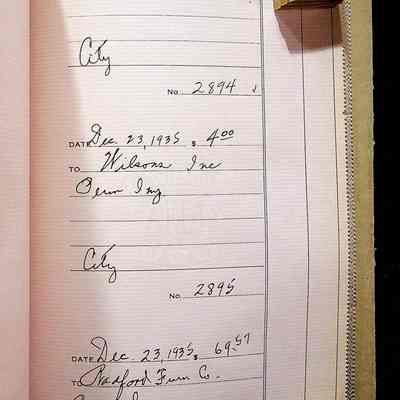 City
No. 2894
DATE Dec. 23, 1935 $ 4.00
TO Wilsons Inc
City
No. 2895
DATE Dec. 23, 1935 $ 69.57
TO Radford Furn Co.